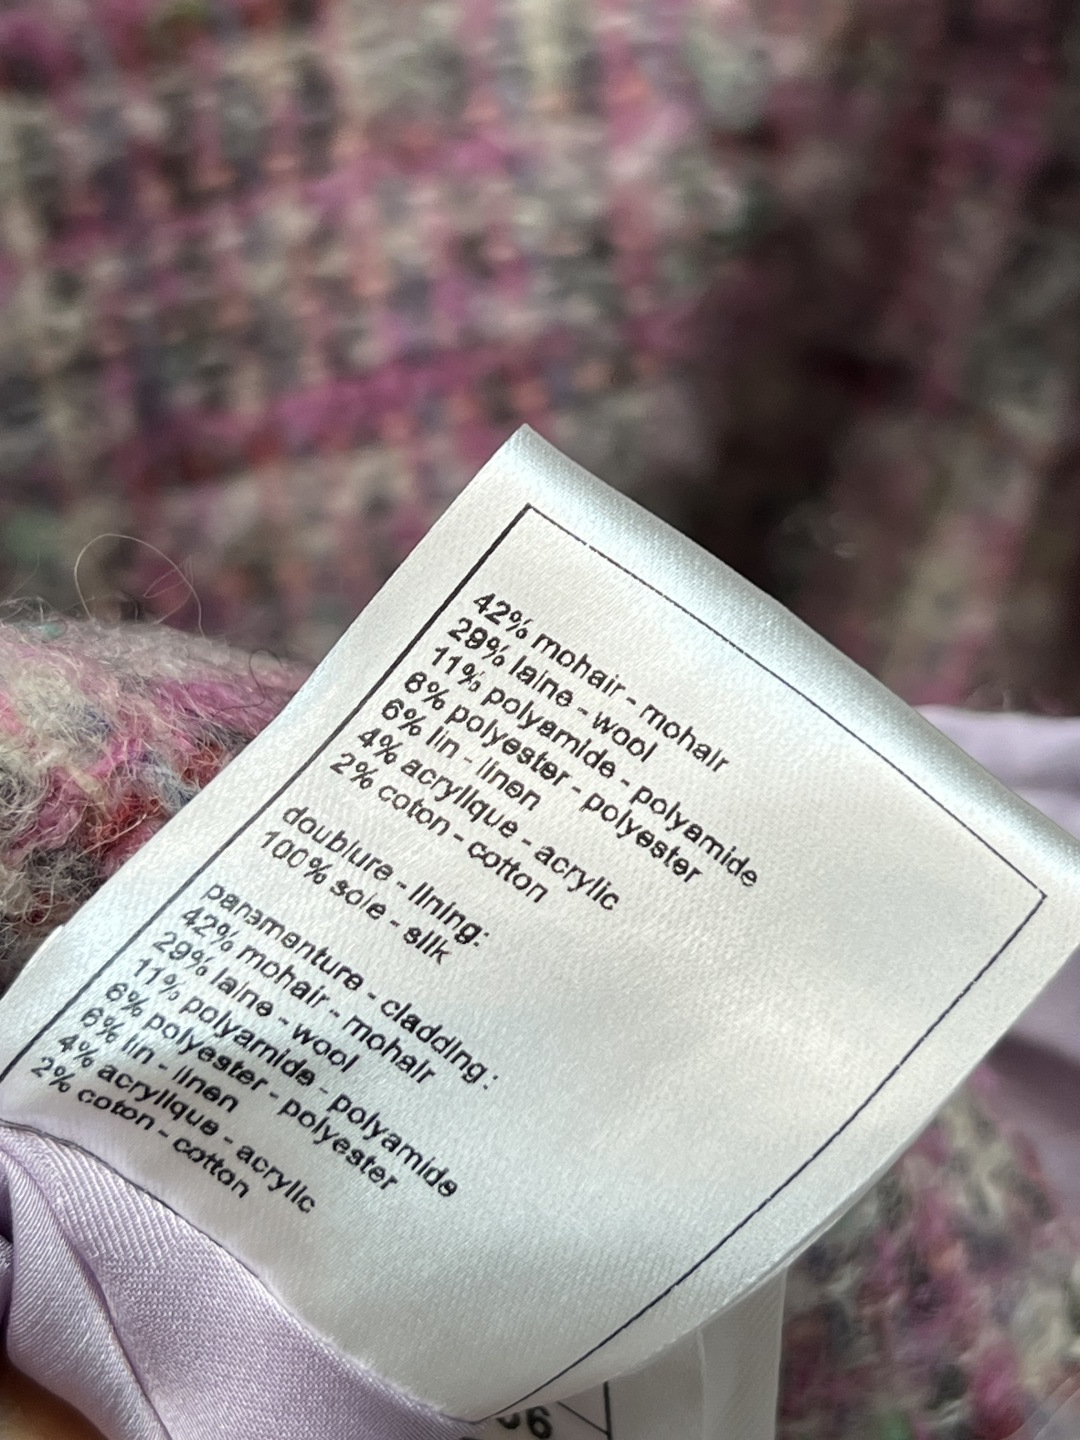 42% mohair - mohair
29% laine - wool
11% polyamide - polyamide
6% polyester - polyester
6% lin - linen
4% acrylique - acrylic
2% coton - cotton
doublure - lining:
100% soie - silk
parementure - cladding :
42% mohair - mohair
29% laine - wool
11% polyamide - polyamide
6% polyester - polyester
6% lin - linen
4% acrylique - acrylic
2% coton - cotton